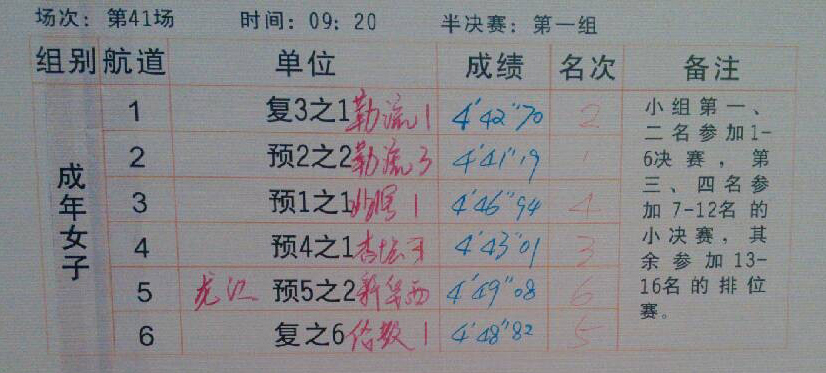 场次：第41场 时间：09：20 半决赛：第一组
组别 航道 单位 成绩 名次 备注
成年女子
1 复3之1 勒流1 4'42"70 2
2 预2之2 勒流3 4'41"19 1
3 预1之1 1 4'46"94 4
4 预4之1 杏坛 4'43"01 3
5 龙江 预5之2 4'49"08 6
6 复之6 伦教1 4'48"82 5
小组第一、
二名参加1-
6决赛，第
三、四名参
加7-12名的
小决赛，其
余参加13-
16名的排位
赛。